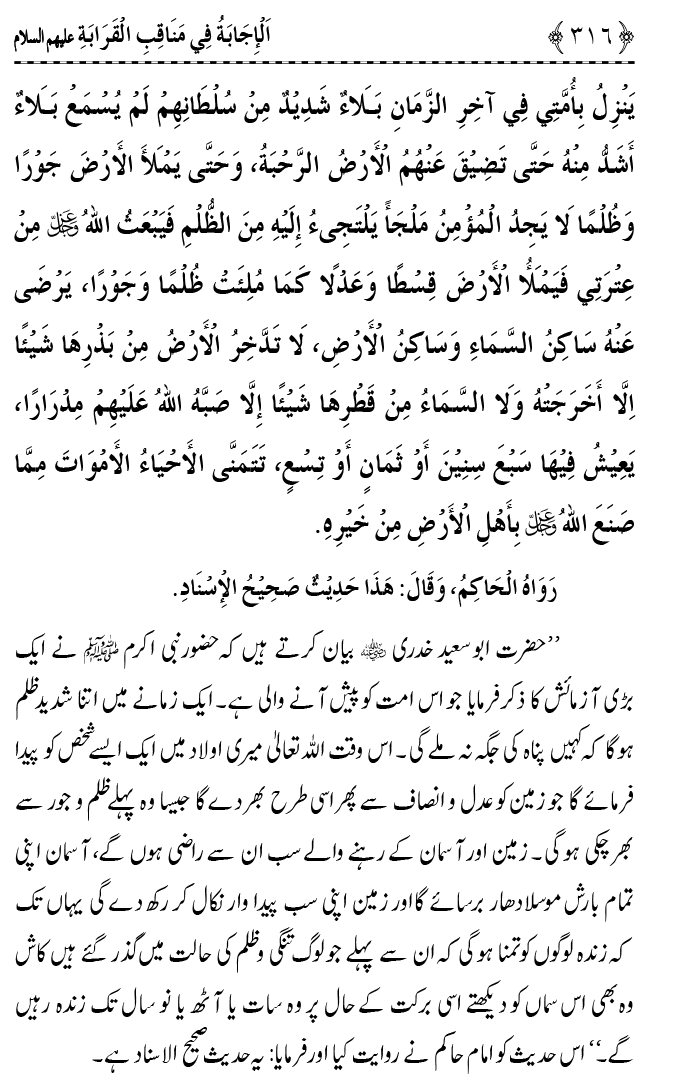 ﴿٣١٦﴾ اَلْإِجَابَةُ فِي مَنَاقِبِ الْقَرَابَةِ علیہم السلام
يَنْزِلُ بِأُمَّتِي فِي آخِرِ الزَّمَانِ بَلَاءٌ شَدِيْدٌ مِنْ سُلْطَانِهِمْ لَمْ يُسْمَعْ بَلَاءٌ
أَشَدُّ مِنْهُ حَتَّى تَضِيْقَ عَنْهُمُ الْأَرْضُ الرَّحْبَةُ، وَحَتَّى يَمْلَأَ الْأَرْضَ جَوْرًا
وَظُلْمًا لَا يَجِدُ الْمُؤْمِنُ مَلْجَأً يَلْتَجِىءُ إِلَيْهِ مِنَ الظُّلْمِ فَيَبْعَثُ اللهُ عزوجل مِنْ
عِتْرَتِي فَيَمْلَأُ الْأَرْضَ قِسْطًا وَعَدْلًا كَمَا مُلِئَتْ ظُلْمًا وَجَوْرًا، يَرْضَى
عَنْهُ سَاكِنُ السَّمَاءِ وَسَاكِنُ الْأَرْضِ، لَا تَدَّخِرُ الْأَرْضُ مِنْ بَذْرِهَا شَيْئًا
اِلَّا أَخْرَجَتْهُ وَلَا السَّمَاءُ مِنْ قَطْرِهَا شَيْئًا إِلَّا صَبَّهُ اللهُ عَلَيْهِمْ مِدْرَارًا،
يَعِيْشُ فِيْهَا سَبْعَ سِنِيْنَ أَوْ ثَمَانٍ أَوْ تِسْعٍ، تَتَمَنَّى الْأَحْيَاءُ الْأَمْوَاتَ مِمَّا
صَنَعَ اللهُ عزوجل بِأَهْلِ الْأَرْضِ مِنْ خَيْرِهِ.
رَوَاهُ الْحَاكِمُ، وَقَالَ: هَذَا حَدِيْثٌ صَحِيْحُ الْإِسْنَادِ.
’’حضرت ابو سعید خدری رضی اللہ عنہ بیان کرتے ہیں کہ حضور نبی اکرم ﷺ نے ایک
بڑی آزمائش کا ذکر فرمایا جو اس امت کو پیش آنے والی ہے۔ ایک زمانے میں اتنا شدید ظلم
ہو گا کہ کہیں پناہ کی جگہ نہ ملے گی۔ اس وقت اللہ تعالیٰ میری اولاد میں ایک ایسے شخص کو پیدا
فرمائے گا جو زمین کو عدل و انصاف سے پھر اسی طرح بھر دے گا جیسا وہ پہلے ظلم و جور سے
بھر چکی ہو گی۔ زمین اور آسمان کے رہنے والے سب ان سے راضی ہوں گے، آسمان اپنی
تمام بارش موسلا دھار برسائے گا اور زمین اپنی سب پیدا وار نکال کر رکھ دے گی یہاں تک
کہ زندہ لوگوں کو تمنا ہو گی کہ ان سے پہلے جو لوگ تنگی و ظلم کی حالت میں گذر گئے ہیں کاش
وہ بھی اس سماں کو دیکھتے اسی برکت کے حال پر وہ سات یا آٹھ یا نو سال تک زندہ رہیں
گے۔‘‘ اس حدیث کو امام حاکم نے روایت کیا اور فرمایا: یہ حدیث صحیح الاسناد ہے۔